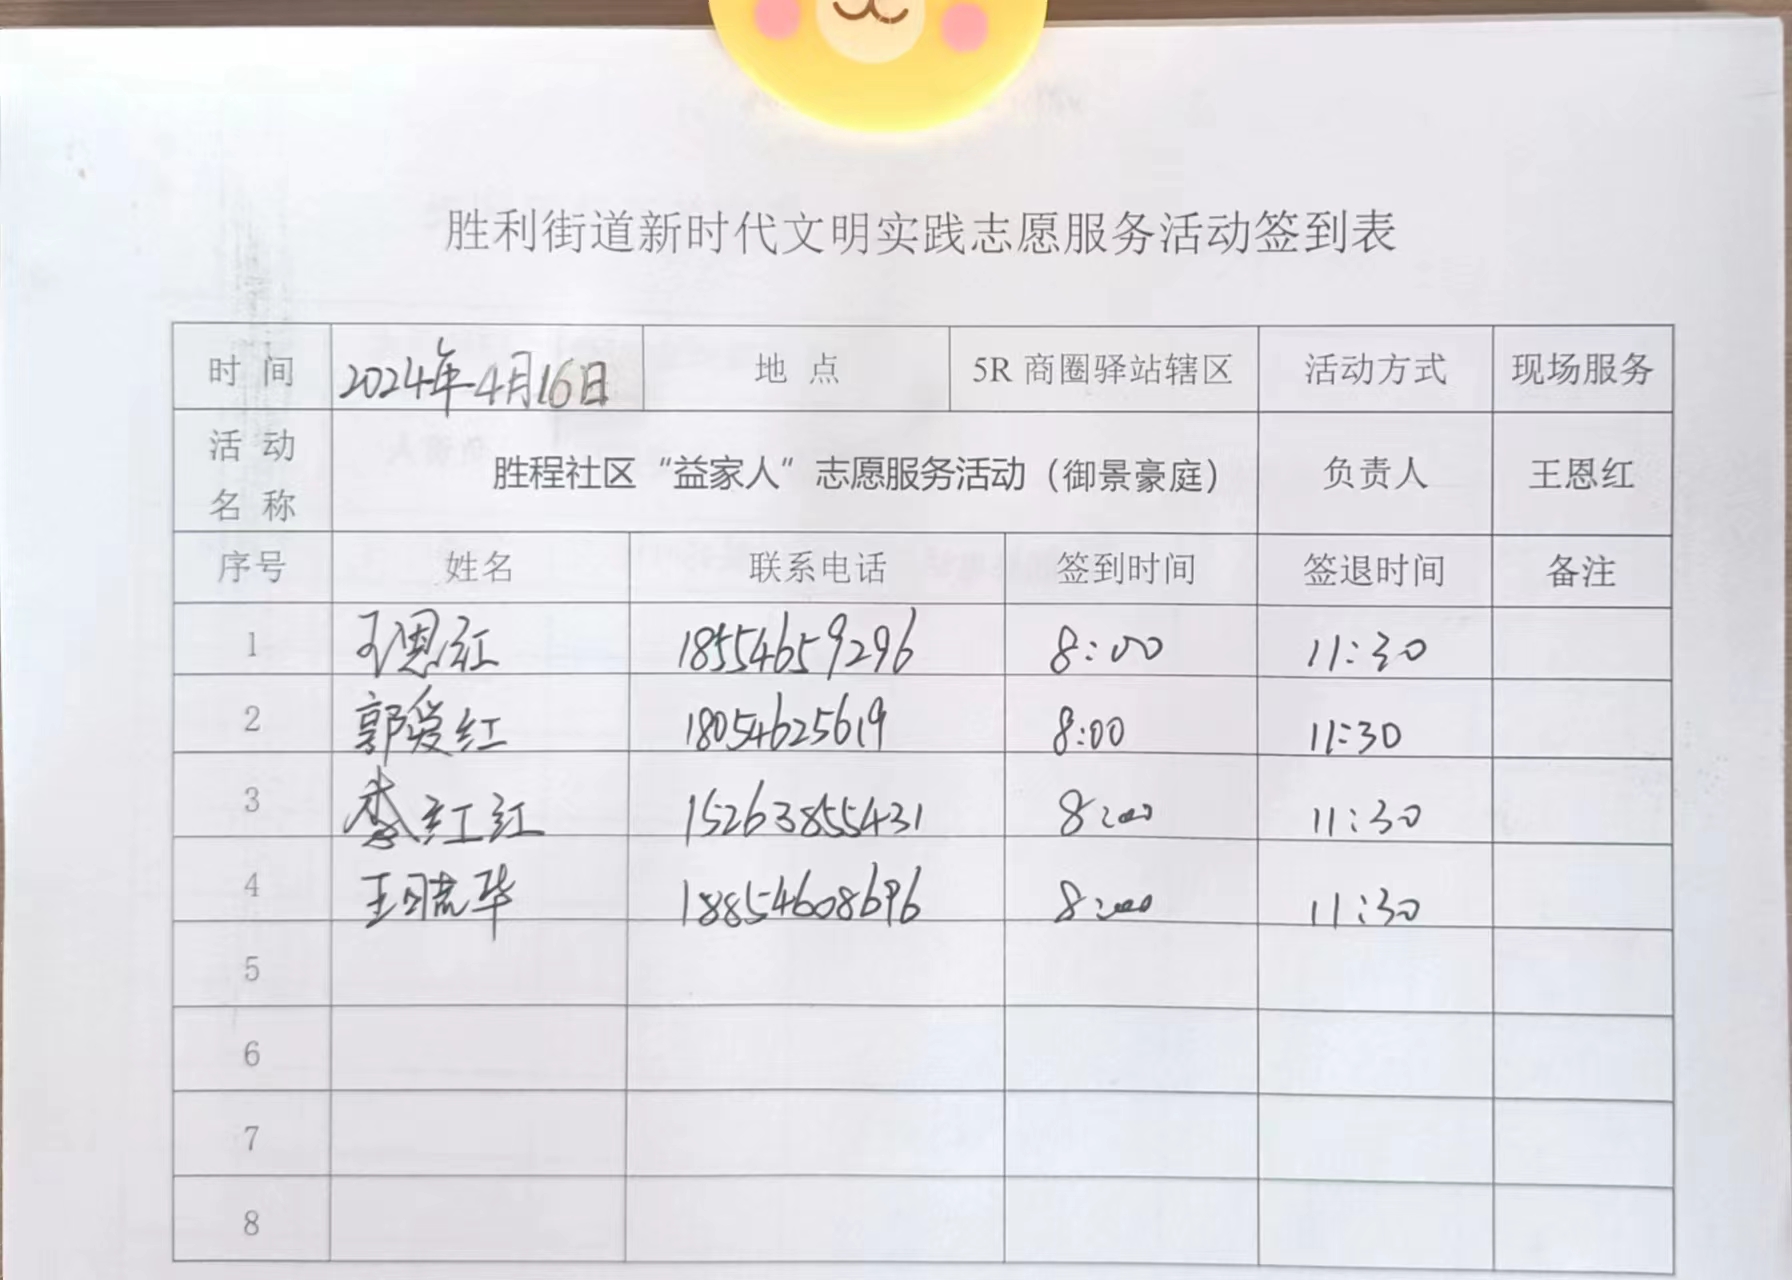 胜利街道新时代文明实践志愿服务活动签到表
时 间 2024年4月16日 地 点 5R 商圈驿站辖区 活动方式 现场服务
活 动 名 称 胜程社区“益家人”志愿服务活动（御景豪庭） 负责人 王恩红
序号 姓名 联系电话 签到时间 签退时间 备注
1 王恩红 18554659296 8:00 11:30
2 郭爱红 18054625619 8:00 11:30
3 李红红 15263855431 8:00 11:30
4 王晓华 18854608696 8:00 11:30
5
6
7
8